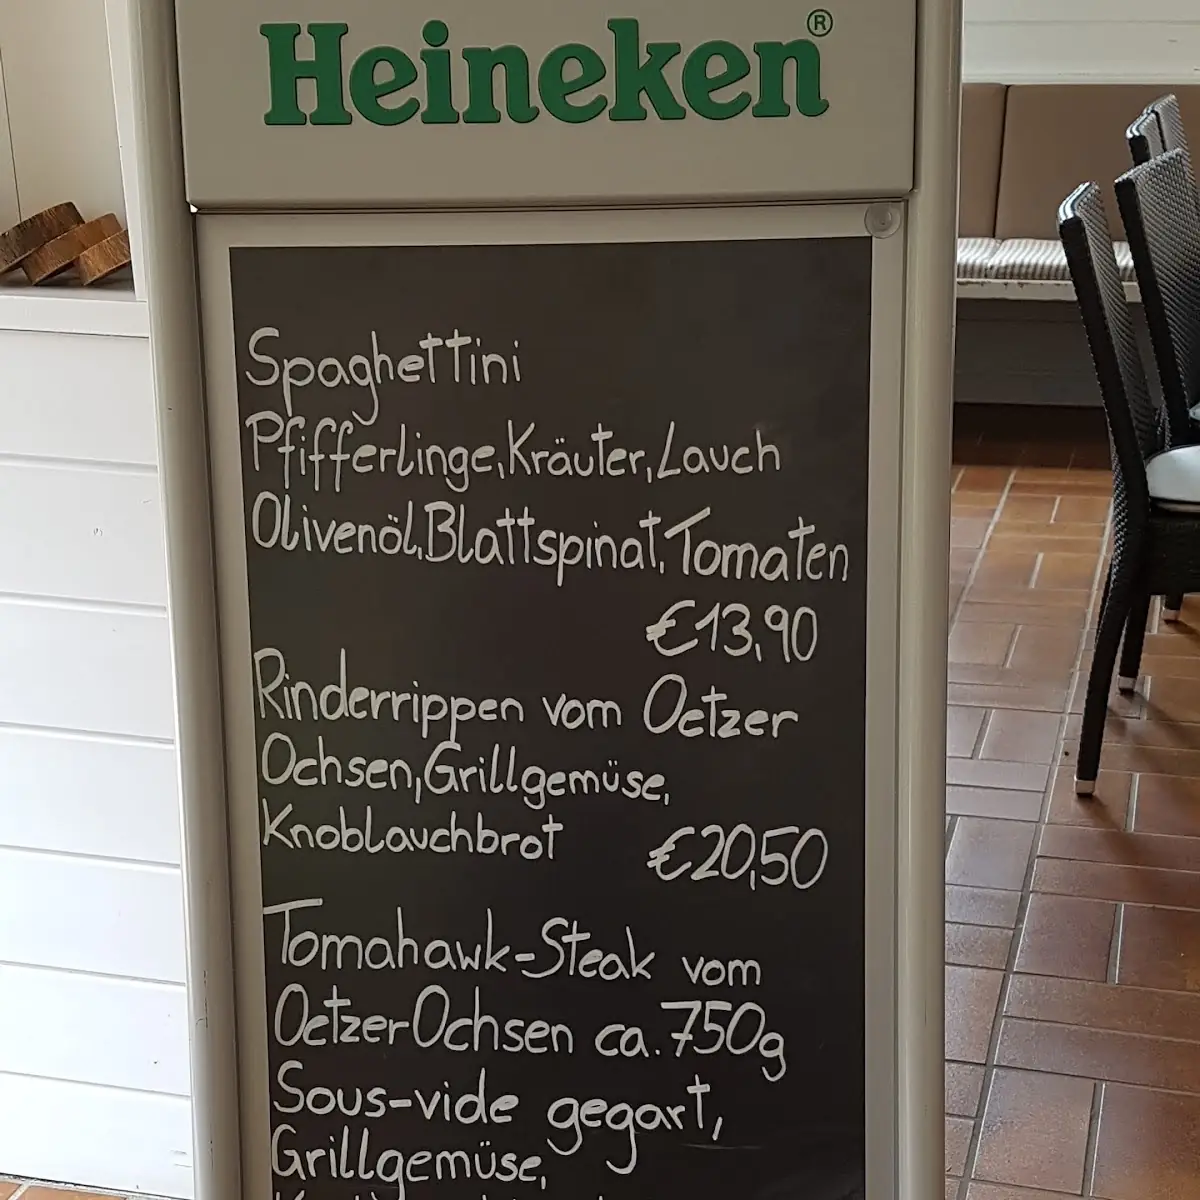 Heineken®
Spaghettini
Pfifferlinge,Kräuter,Lauch
Olivenöl,Blattspinat,Tomaten
€13,90
Rinderrippen vom Oetzer
Ochsen,Grillgemüse,
Knoblauchbrot €20,50
Tomahawk-Steak vom
Oetzer Ochsen ca.750g
Sous-vide gegart,
Grillgemüse,